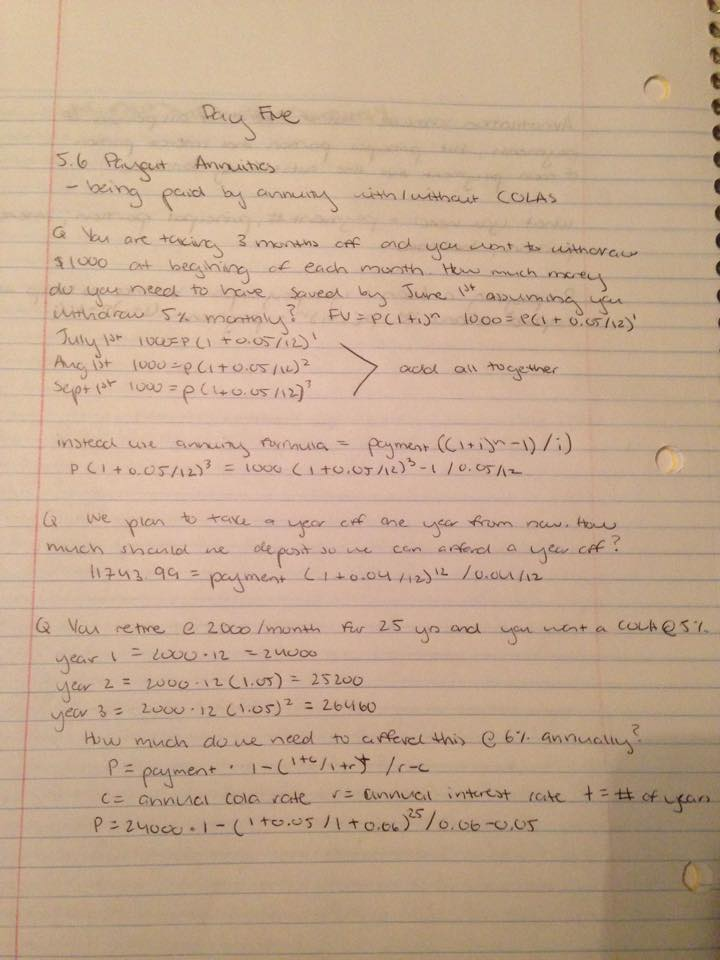 Day Five
5.6 Payout Annuities
- being paid by annuity with/without COLAS
Q You are taking 3 months off and you want to withdraw
$1000 at begining of each month. How much money
do you need to have saved by June 1st assuming you
withdraw 5% monthly? FV = P(1+i)^n 1000 = P(1 + 0.05/12)^1
July 1st 1000=P(1 + 0.05/12)^1
Aug 1st 1000=P(1+0.05/12)^2
Sept 1st 1000=P(1+0.05/12)^3
add all together
instead use annuity formula = payment ((1+i)^n -1)/i)
P(1+0.05/12)^3 = 1000 (1+0.05/12)^3 -1 /0.05/12
Q We plan to take a year off one year from now. How
much should we deposit so we can afford a year off?
11743.99 = payment (1+0.04/12)^12 /0.04/12
Q You retire @ 2000/month for 25 yrs and you want a COLA @ 5%.
year 1 = 2000·12 = 24000
year 2 = 2000·12(1.05) = 25200
year 3 = 2000·12(1.05)^2 = 26460
How much do we need to afford this @ 6% annually?
P = payment · 1-(1+c/1+r)^t /r-c
c = annual cola rate r = annual interest rate t = # of years
P = 24000·1-(1+0.05/1+0.06)^25/0.06-0.05